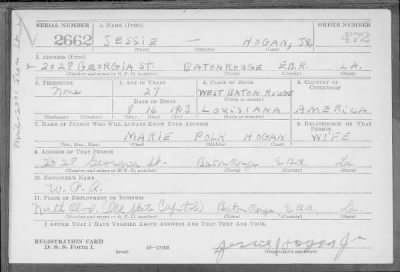 SERIAL NUMBER
1. NAME (Print)
ORDER NUMBER
2662
JESSIE — HOGAN, JR.
472
(First) (Middle) (Last)
2. ADDRESS (Print)
2028 GEORGIA ST. BATON ROUGE E.B.R. LA.
(Number and street or R. F. D. number) (Town) (County) (State)
3. TELEPHONE
4. AGE IN YEARS
5. PLACE OF BIRTH
6. COUNTRY OF CITIZENSHIP
None
27
WEST BATON ROUGE
DATE OF BIRTH
8 16 1913
LOUISIANA
AMERICA
(Exchange) (Number) (Mo.) (Day) (Yr.) (State or country)
7. NAME OF PERSON WHO WILL ALWAYS KNOW YOUR ADDRESS
8. RELATIONSHIP OF THAT PERSON
MARIE POLK HOGAN WIFE
(Mr., Mrs., Miss) (First) (Middle) (Last)
9. ADDRESS OF THAT PERSON
2028 Georgia St. Baton Rouge, E.B.R. La.
(Number and street or R. F. D. number) (Town) (County) (State)
10. EMPLOYER'S NAME
W. P. A.
11. PLACE OF EMPLOYMENT OR BUSINESS
North Blvd. (Old State Capitol) Baton Rouge, E.B.R. La.
(Number and street or R. F. D. number) (Town) (County) (State)
I AFFIRM THAT I HAVE VERIFIED ABOVE ANSWERS AND THAT THEY ARE TRUE.
REGISTRATION CARD
D. S. S. Form 1
(over)
Jessie Hogan Jr